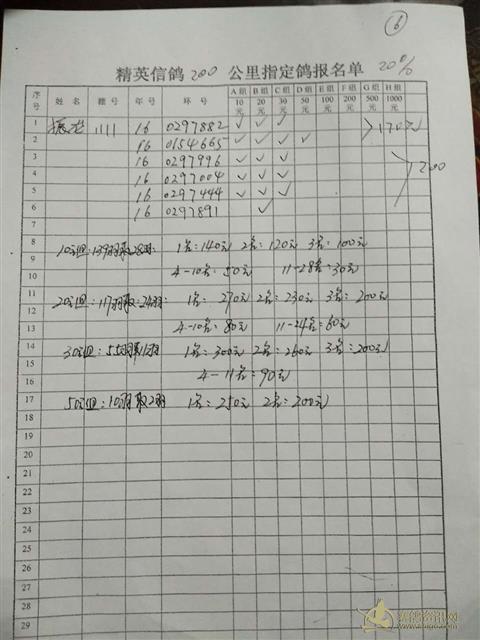 16
精英信鸽 200 公里指定鸽报名单 20%
序号 姓名 棚号 年号 环号 A组10元 B组20元 C组30元 D组50元 E组100元 F组200元 G组500元 H组1000元
1 1111 16 0297882 ✓ ✓ ✓ 170元
2 16 0154665 ✓ ✓ ✓ ✓
3 16 0297996 ✓ ✓ ✓ 200
4 16 0297004 ✓ ✓ ✓
5 16 0297444 ✓ ✓ ✓
6 16 0297891 ✓
7
8 10元组:139羽取28羽: 1名:140元 2名:120元 3名:100元
9
10 4-10名:50元 11-28名:30元
11 20元组:117羽取24羽: 1名:270元 2名:230元 3名:200元
12
13 4-10名:80元 11-24名:60元
14 30元组:55羽取11羽 1名:300元 2名:260元 3名:200元
15
16 4-11名:90元
17 50元组:10羽取2羽 1名:250元 2名:200元
18
19
20
21
22
23
24
25
26
27
28
29